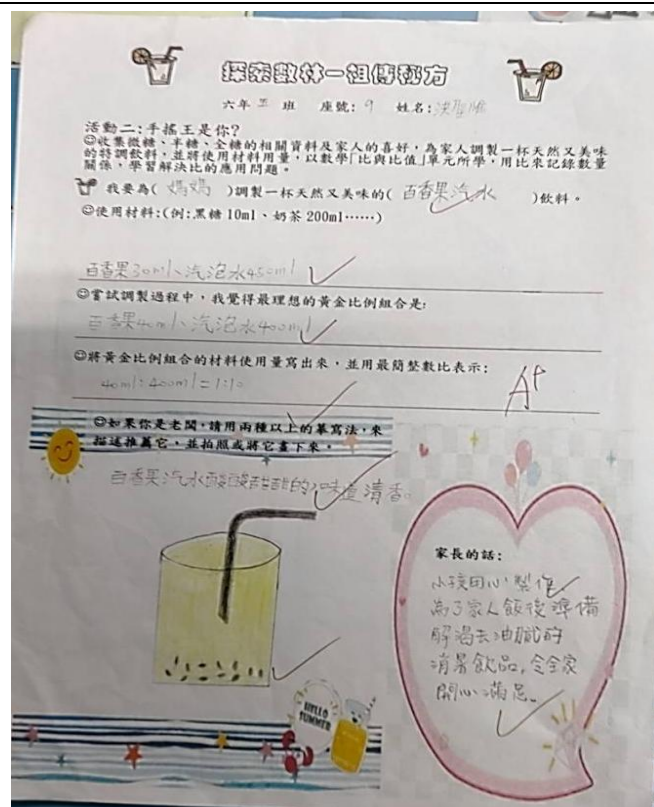 探索數林－祖傳秘方
六年 五 班 座號: 9 姓名:
活動二:手搖王是你?
☺收集微糖、半糖、全糖的相關資料及家人的喜好，為家人調製一杯天然又美味
的特調飲料，並將使用材料用量，以數學「比與比值」單元所學，用比來記錄數量
關係，學習解決比的應用問題。
我要為( 媽媽 )調製一杯天然又美味的( 百香果汽水 )飲料。
☺使用材料:(例:黑糖 10ml、奶茶 200ml……)
百香果30ml、汽泡水450ml
☺嘗試調製過程中，我覺得最理想的黃金比例組合是:
百香果40ml、汽泡水400ml
☺將黃金比例組合的材料使用量寫出來，並用最簡整數比表示:
40ml:400ml=1:10
A+
☺如果你是老闆，請用兩種以上的摹寫法，來
描述推薦它，並拍照或將它畫下來。
百香果汽水酸酸甜甜的,味道清香。
家長的話:
小孩用心製作
為了家人飯後準備
解渴去油膩的
消暑飲品,令全家
開心滿足。
HELLO
SUMMER